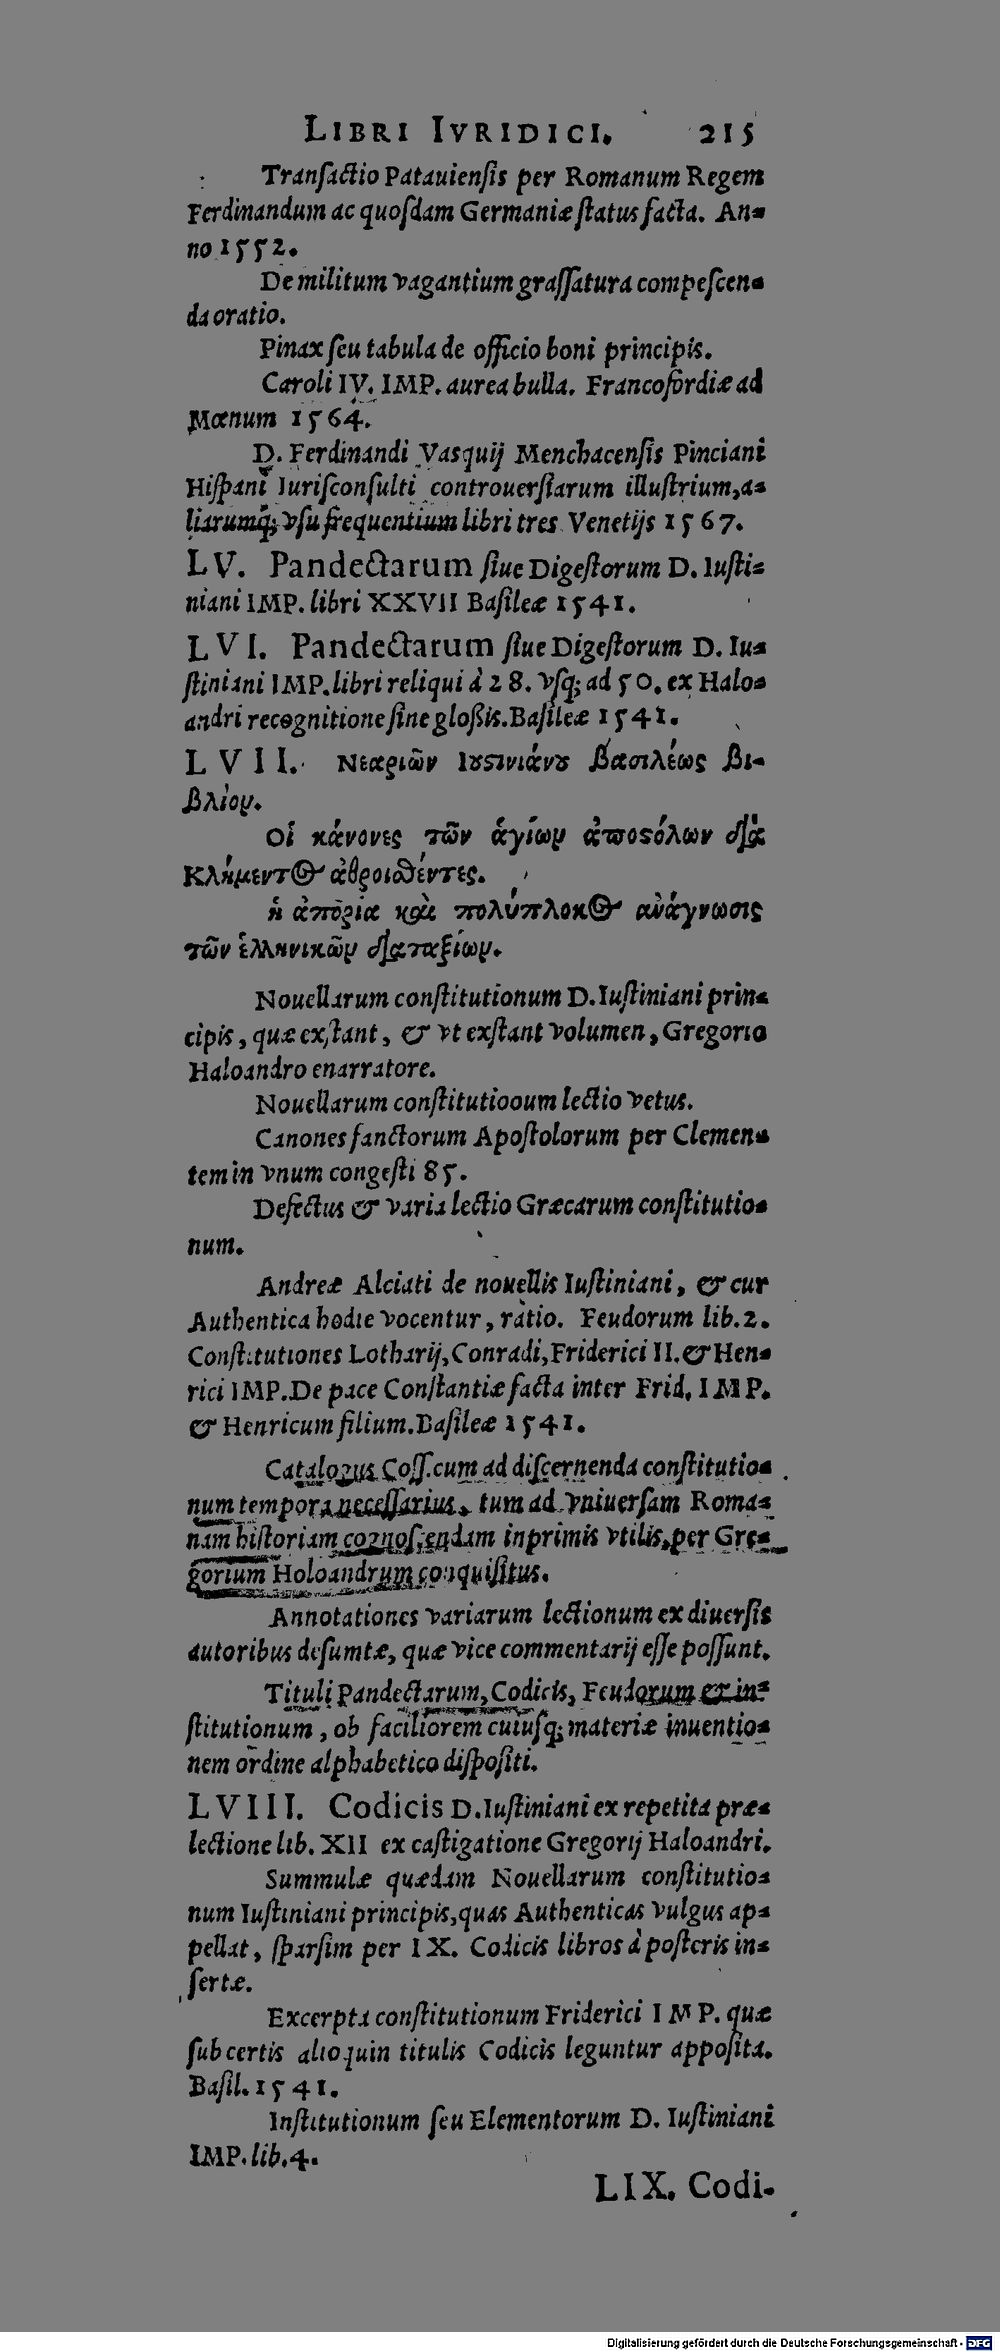 LIBRI IVRIDICI. 215
Tranſactio Patauienſis per Romanum Regem
Ferdinandum ac quoſdam Germaniæ ſtatus facta. An-
no 1552.
De militum vagantium graſſatura compeſcen-
da oratio.
Pinax ſeu tabula de officio boni principis.
Caroli IV. IMP. aurea bulla. Francofordiæ ad
Mœnum 1564.
D. Ferdinandi Vasquij Menchacenſis Pinciani
Hiſpani Iuriſconſulti controuerſiarum illuſtrium, a-
liarumq; vſu frequentium libri tres Venetijs 1567.
LV. Pandectarum ſiue Digeſtorum D. Iuſti-
niani IMP. libri XXVII Baſileæ 1541.
LVI. Pandectarum ſiue Digeſtorum D. Iu-
ſtiniani IMP. libri reliqui à 28. vſq; ad 50. ex Halo-
andri recognitione ſine gloßis. Baſileæ 1541.
LVII. Νεαριῶν Ιουστινιάνου βασιλέως βι-
βλίον.
Οἱ κάνονες τῶν ἁγίων ἀποστόλων διὰ
Κλήμεντος ἀθροισθέντες.
ἡ ἀπορία καὶ πολύπλοκος ἀνάγνωσις
τῶν ἑλληνικῶν διαταξίων.
Nouellarum conſtitutionum D. Iuſtiniani prin-
cipis, quæ exſtant, & vt exſtant volumen, Gregorio
Haloandro enarratore.
Nouellarum conſtitutiooum lectio vetus.
Canones ſanctorum Apoſtolorum per Clemen-
tem in vnum congeſti 85.
Defectus & varia lectio Græcarum conſtitutio-
num.
Andreæ Alciati de nouellis Iuſtiniani, & cur
Authentica hodie vocentur, ratio. Feudorum lib. 2.
Conſtitutiones Lotharij, Conradi, Friderici II. & Hen-
rici IMP. De pace Conſtantiæ facta inter Frid. IMP.
& Henricum filium. Baſileæ 1541.
Catalogus Coſſ. cum ad diſcernenda conſtitutio-
num tempora neceſſarius, tum ad vniuerſam Roma-
nam hiſtoriam cognoſcendam inprimis vtilis, per Gre-
gorium Holoandrum conquiſitus.
Annotationes variarum lectionum ex diuerſis
autoribus deſumtæ, quæ vice commentarij eſſe poſſunt.
Tituli Pandectarum, Codicis, Feudorum et in-
ſtitutionum, ob faciliorem cuiuſq; materiæ inuentio-
nem ordine alphabetico diſpoſiti.
LVIII. Codicis D. Iuſtiniani ex repetita præ-
lectione lib. XII ex caſtigatione Gregorij Haloandri.
Summulæ quædam Nouellarum conſtitutio-
num Iuſtiniani principis, quas Authenticas vulgus ap-
pellat, ſparſim per IX. Codicis libros à poſteris in-
ſertæ.
Excerpta conſtitutionum Friderici IMP. quæ
ſub certis alioquin titulis Codicis leguntur appoſita.
Baſil. 1541.
Inſtitutionum ſeu Elementorum D. Iuſtiniani
IMP. lib. 4.
LIX. Codi-
Digitalisierung gefördert durch die Deutsche Forschungsgemeinschaft - DFG